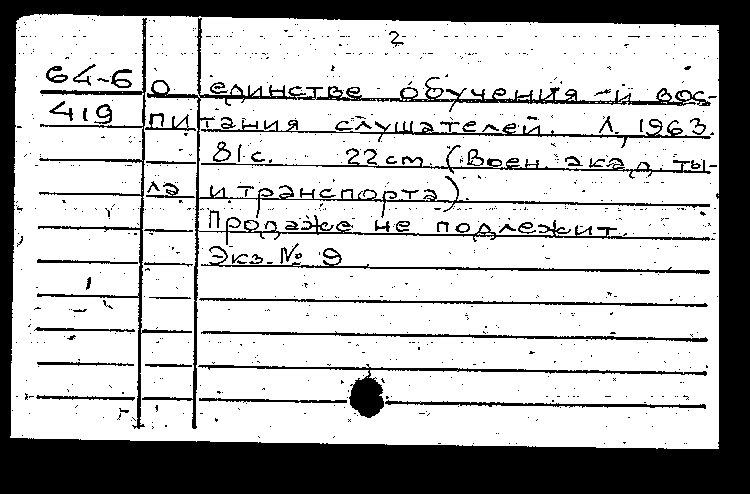 2
64-6 О единстве обучения и вос-
419 питания слушателей. Л, 1963.
81с. 22cm (Воен. акад. ты-
ла и транспорта).
Продаже не подлежит.
Экз. № 9